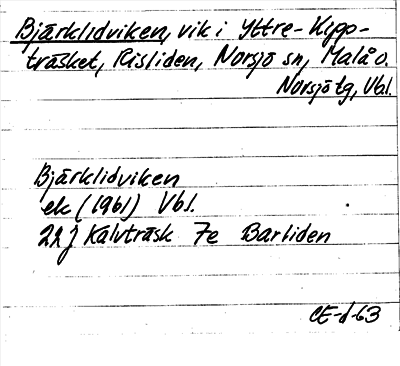 Bjärklidviken, vik i Yttre-Kypo-
träsket, Risliden, Norsjö sn, Malå o.
Norsjö tg, Vbl.
Bjärklidviken
ek (1961) Vbl.
22 j Kalvträsk 7e Barliden
CE-d-63